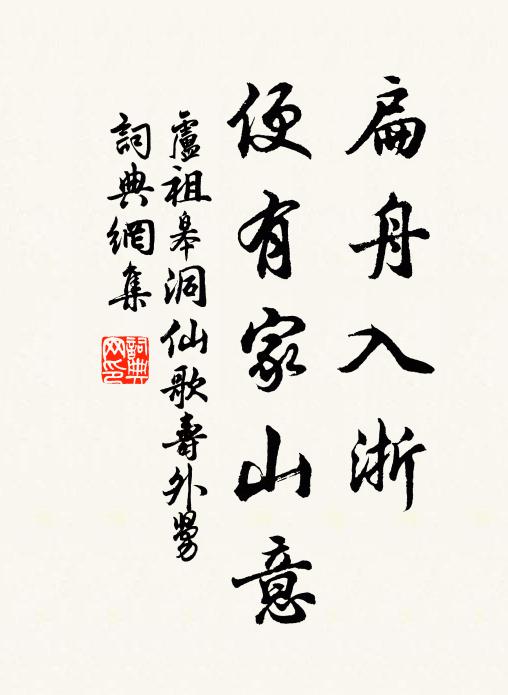 扁舟入浙
便有家山意
盧祖皋洞仙歌壽外舅
詞典網集
詞典网印